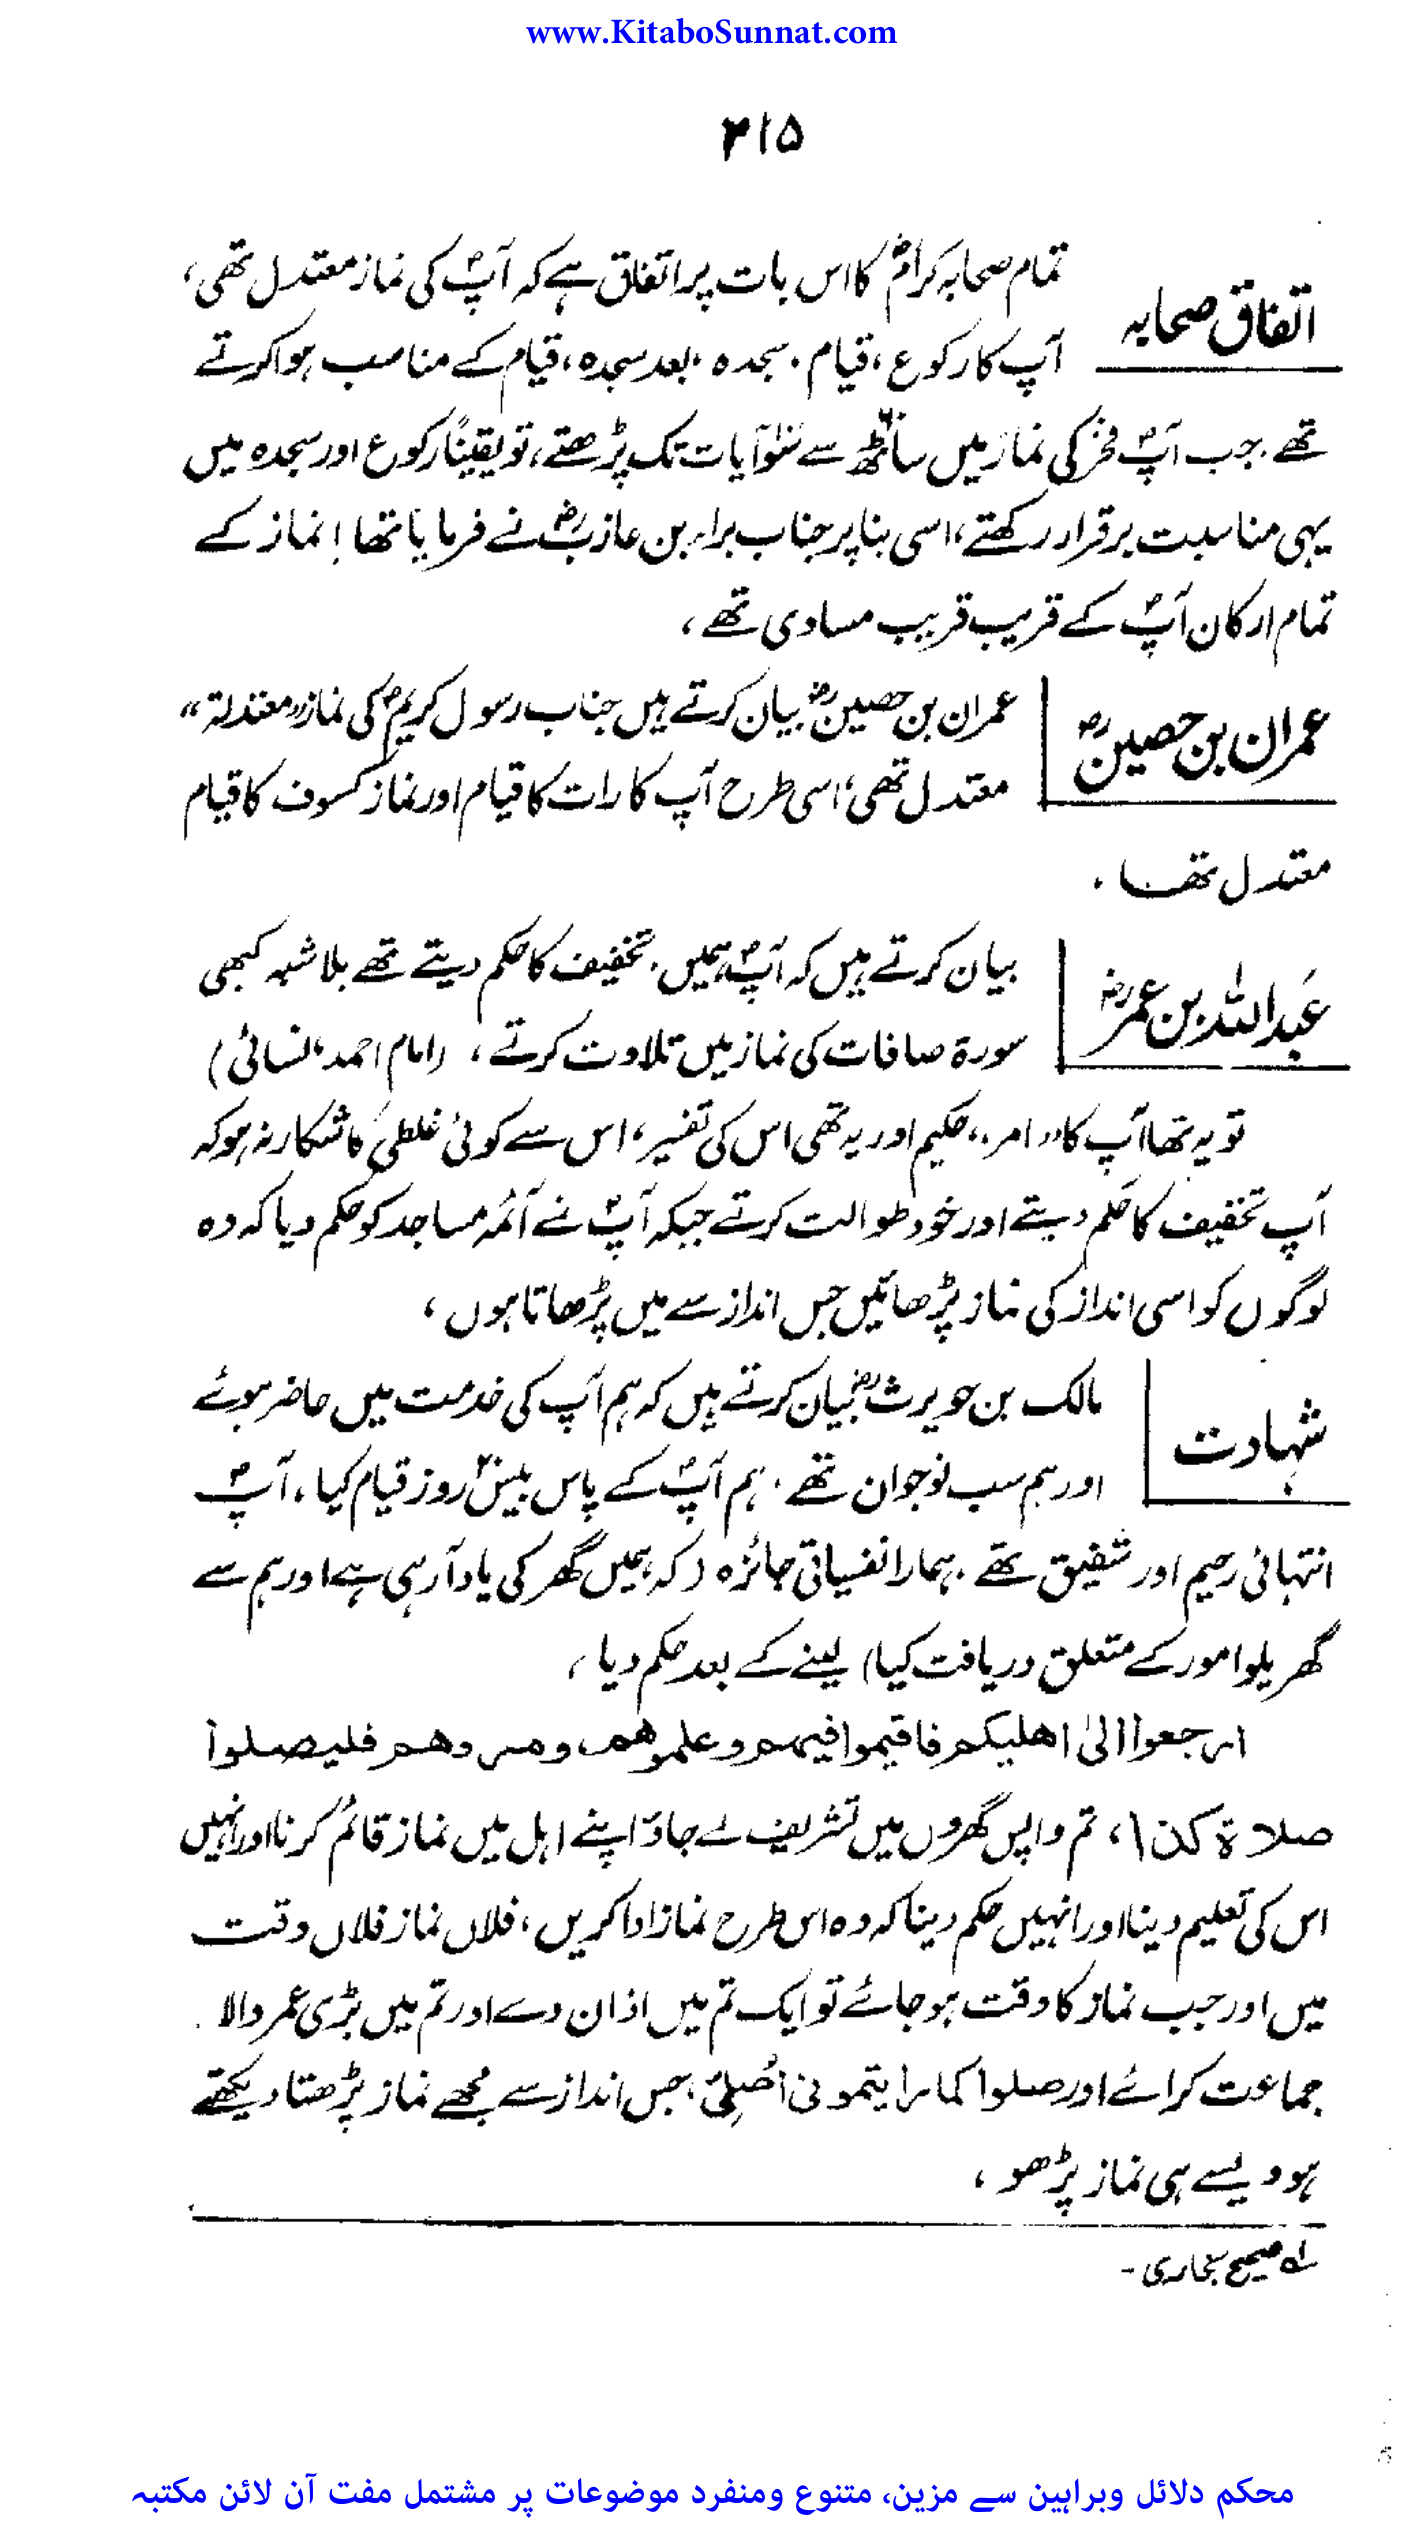 www.KitaboSunnat.com
۲۱۵
اتفاق صحابہ
تمام صحابہ کرامؓ کا اس بات پر اتفاق ہے کہ آپؐ کی نماز معتدل تھی،
آپ کا رکوع، قیام، سجدہ، بعد سجدہ، قیام کے مناسب ہوا کرتے
تھے۔ جب آپؐ فجر کی نماز میں ساٹھ سے سَو آیات تک پڑھتے، تو یقیناً رکوع اور سجدہ میں
یہی مناسبت برقرار رکھتے، اسی بنا پر جناب براء بن عازبؓ نے فرمایا تھا! نماز کے
تمام ارکان آپؐ کے قریب قریب مساوی تھے،
عمران بن حصینؓ
عمران بن حصینؓ بیان کرتے ہیں جناب رسول کریمؐ کی نماز ”معتدلة“
معتدل تھی، اسی طرح آپ کا رات کا قیام اور نماز کسوف کا قیام
معتدل تھا۔
عبداللہ بن عمرؓ
بیان کرتے ہیں کہ آپؐ ہمیں۔ تخفیف کا حکم دیتے تھے بلاشبہ کبھی
سورۃ صافات کی نماز میں تلاوت کرتے، (امام احمد، نسائی)
تو یہ تھا آپ کا ”امر“، حکیم اور یہ تھی اس کی تفسیر، اس سے کوئی غلطی کا شکار نہ ہو کہ
آپ تخفیف کا حکم دیتے اور خود طوالت کرتے جبکہ آپؐ نے آئمہ مساجد کو حکم دیا کہ وہ
لوگوں کو اسی انداز کی نماز پڑھائیں جس انداز سے میں پڑھاتا ہوں،
شہادت
مالک بن حویرثؓ بیان کرتے ہیں کہ ہم آپ کی خدمت میں حاضر ہوئے
اور ہم سب نوجوان تھے۔ ہم آپؐ کے پاس بیس روز قیام کیا، آپؐ
انتہائی رحیم اور شفیق تھے۔ ہمارا نفسیاتی جائزہ (کہ ہمیں گھر کی یاد آ رہی ہے اور ہم سے
گھریلو امور کے متعلق دریافت کیا) لینے کے بعد حکم دیا،
ارجعوا الیٰ اھلیکم فاقیموا فیھم وعلموھم ومروھم فلیصلوا
صلاة کذا، تم واپس گھروں میں تشریف لے جاؤ اپنے اہل میں نماز قائم کرنا اور انہیں
اس کی تعلیم دینا اور انہیں حکم دینا کہ وہ اس طرح نماز ادا کریں، فلاں نماز فلاں وقت
میں اور جب نماز کا وقت ہو جائے تو ایک تم میں اذان دے اور تم میں بڑی عمر والا
جماعت کرائے اور صلوا کما رایتمونی اُصلی، جس انداز سے مجھے نماز پڑھتا دیکھتے
ہو ویسے ہی نماز پڑھو،
لہ صحیح بخاری -
محکم دلائل وبراہین سے مزین، متنوع ومنفرد موضوعات پر مشتمل مفت آن لائن مکتبہ